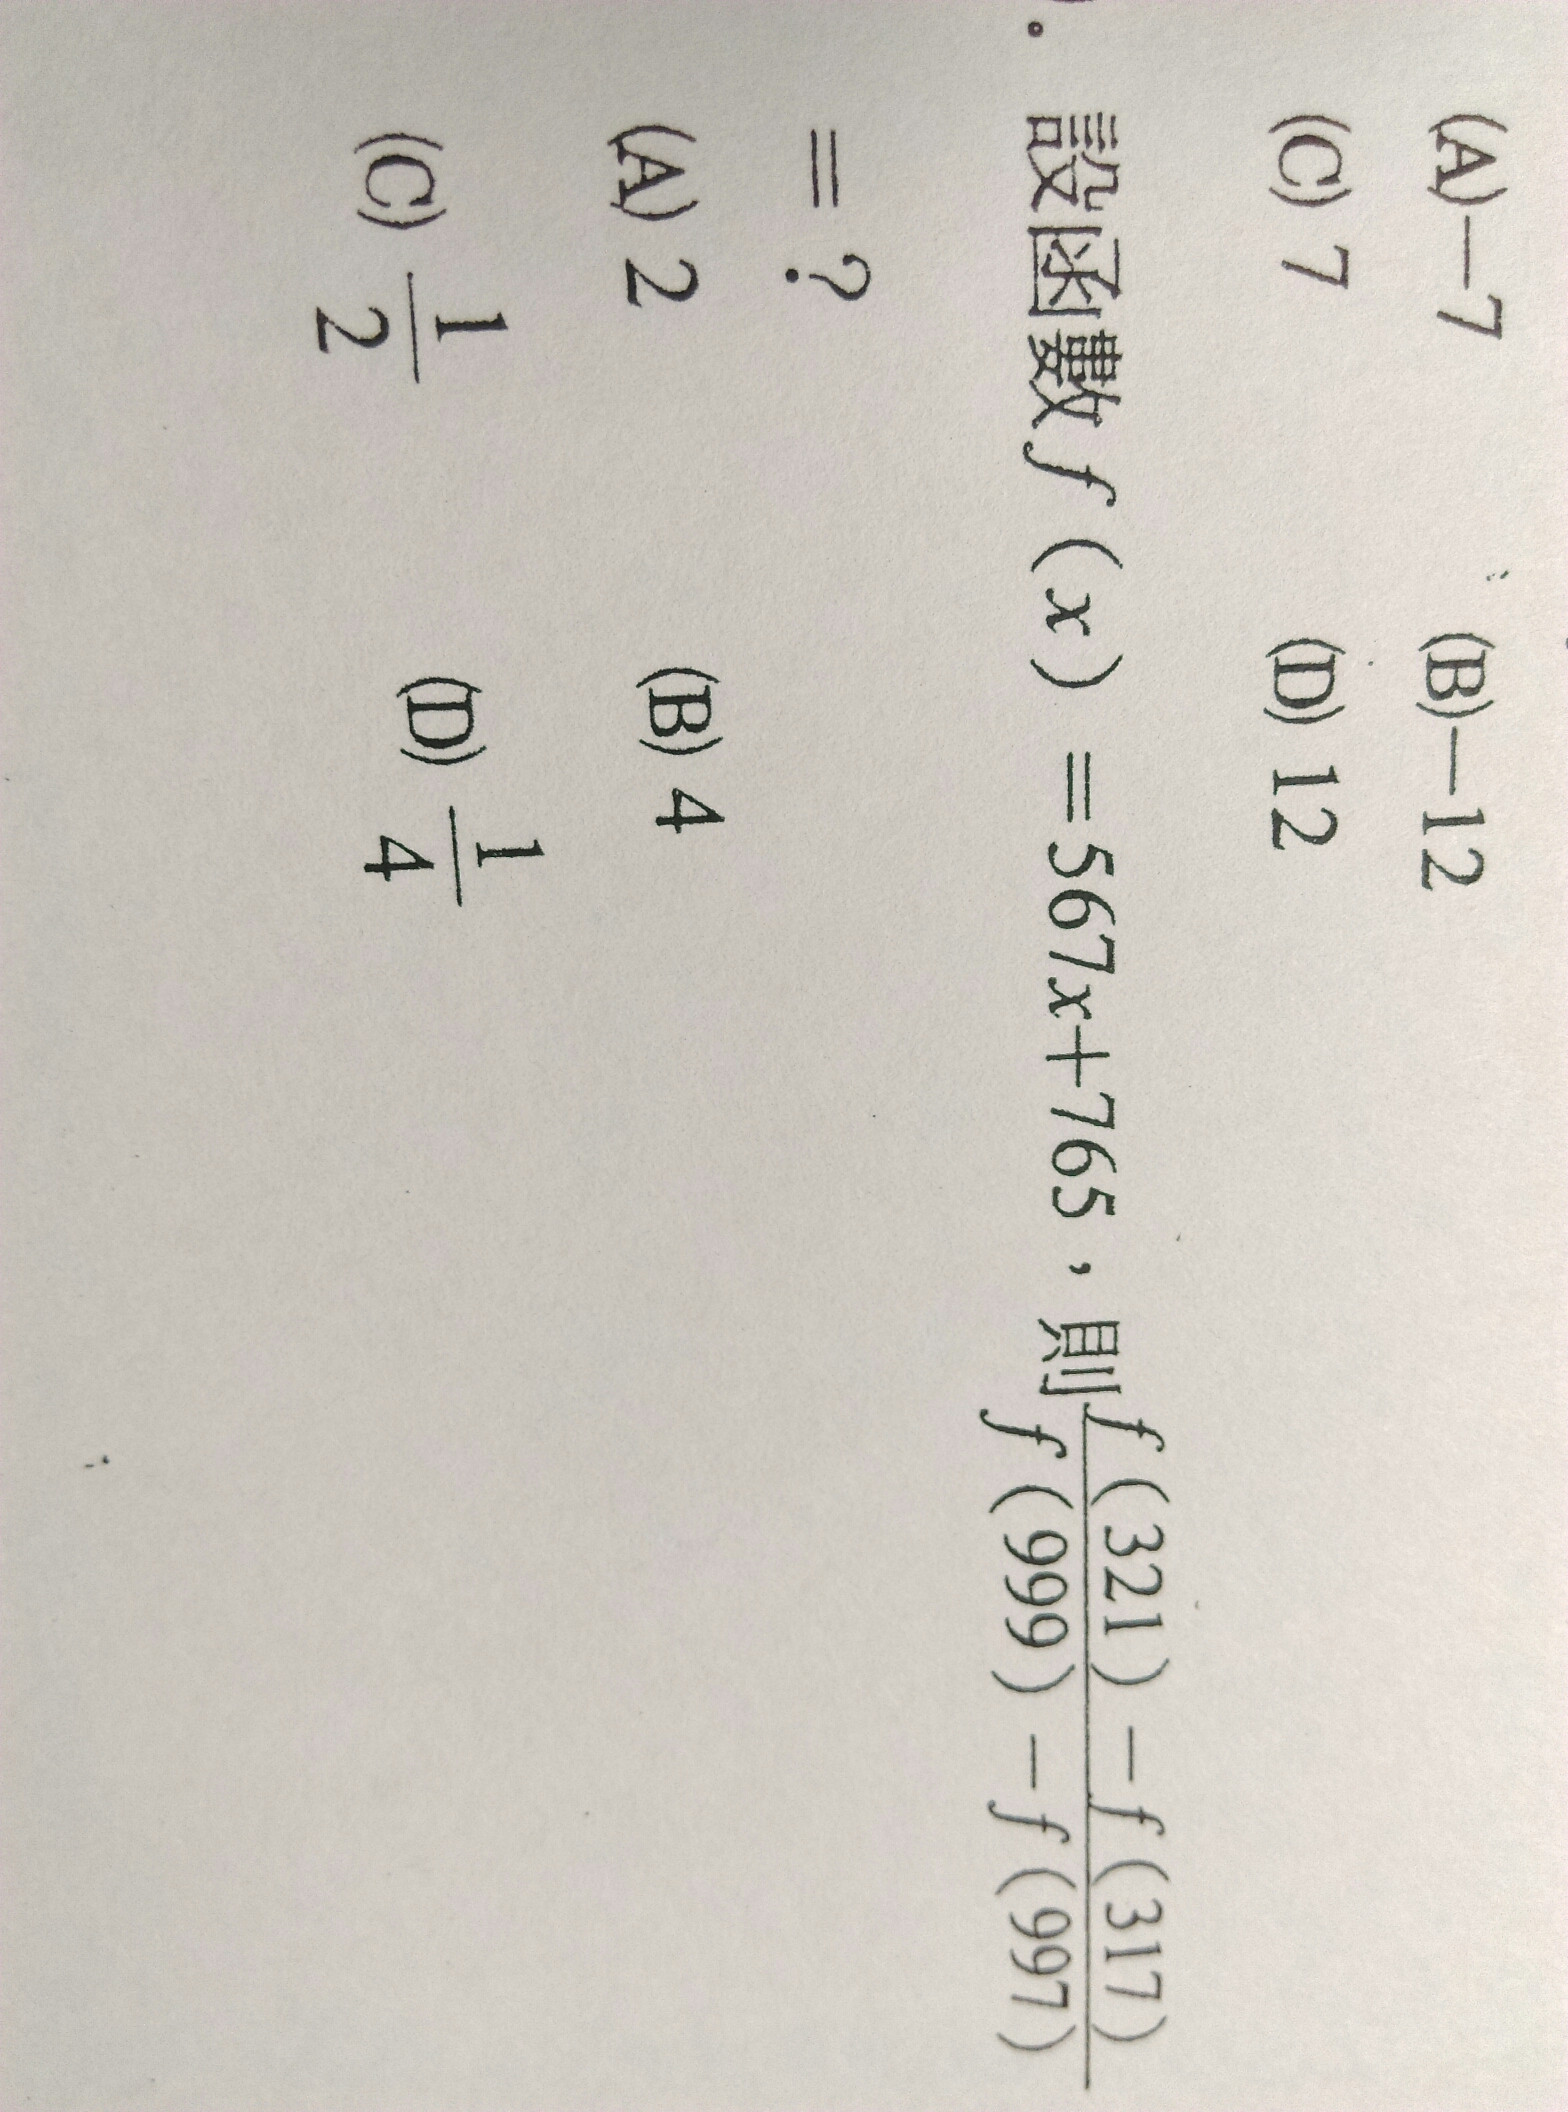 (A)−7 (B)−12
(C) 7 (D) 12
設函數 f (x) =567x+765，則 \frac{f (321) − f (317)}{f (999) − f (997)}
=？
(A) 2 (B) 4
(C) \frac{1}{2} (D) \frac{1}{4}